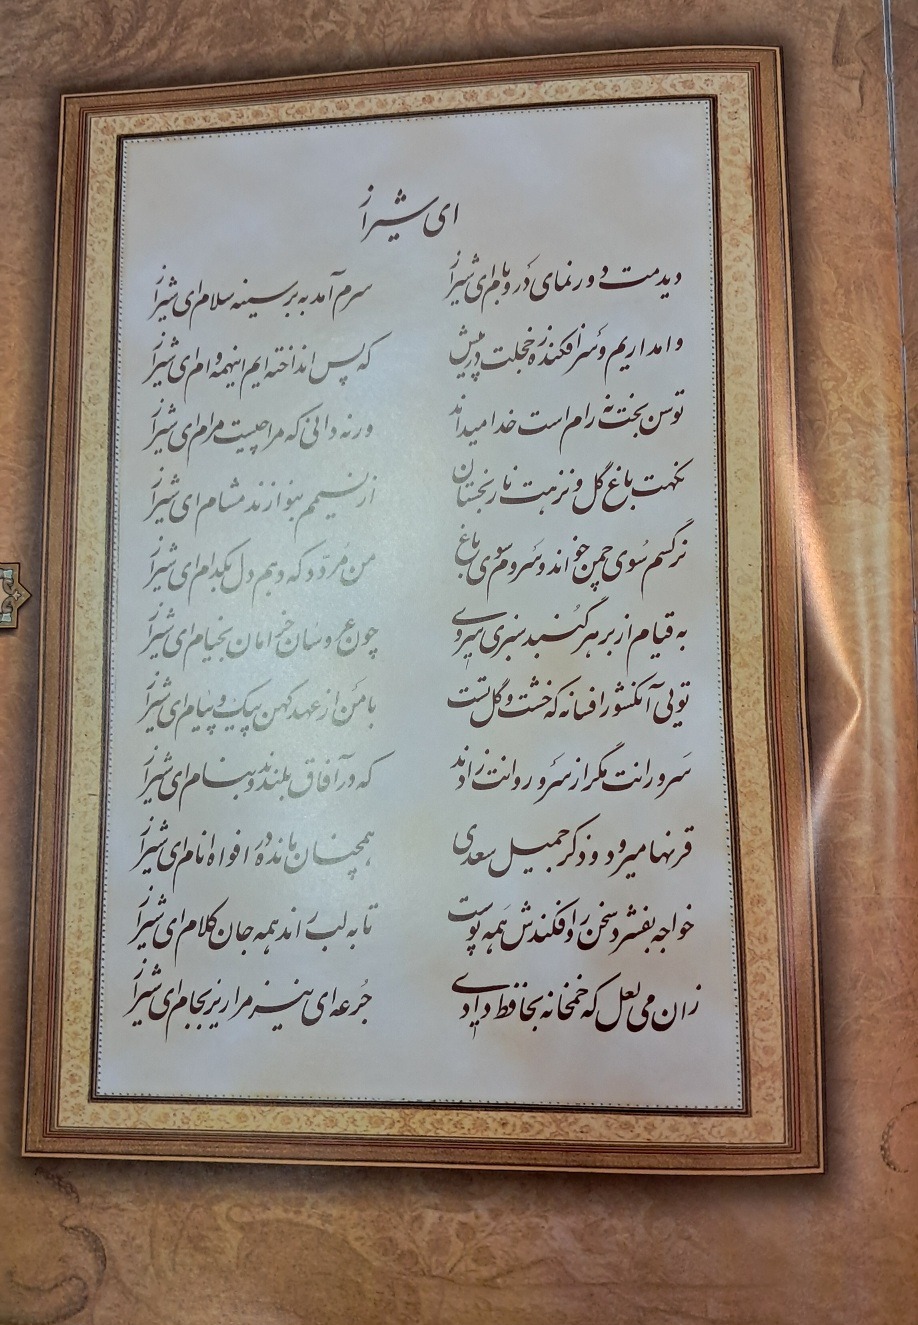 ای شیراز
دیدمت دورنمای در و بام ای شیراز سرم آمد به بر سینه سلام ای شیراز
وامداریم و سرافکنده ز خجلت در پیش که پس انداخته ایم اینهمه وام ای شیراز
توسن بخت نه رام است خدا میداند ورنه دانی که مرا چیست مرام ای شیراز
نکهت باغ گل و نزهت نارنجستان از نسیم بنوازند مشام ای شیراز
نرگسم سوی چمن خواند و سروم سوی باغ من مردد که دهم دل بکدام ای شیراز
به قیام از بر هر گنبد سبزی سروی چون عروسان خرامان بخیام ای شیراز
تویی آنکشور افسانه که خشت و گل تست با من از عهد کهن پیک و پیام ای شیراز
سرورانت مگر از سرو روانت زادند که در آفاق بلندند و بنام ای شیراز
قرنها میرود و ذکر جمیل سعدی همچنان مانده در افواه انام ای شیراز
خواجه بفشرد سخن را و فکندش همه پوست تا به لب راند همه جان کلام ای شیراز
زان می لعل که خمخانه بحافظ دادی جرعه ای نیز مرا ریز بجام ای شیراز